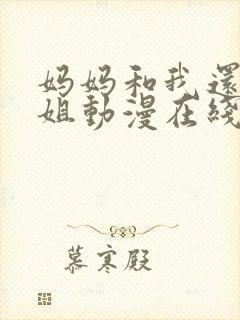 妈妈和我還
姐動漫在綫
慕寒殿